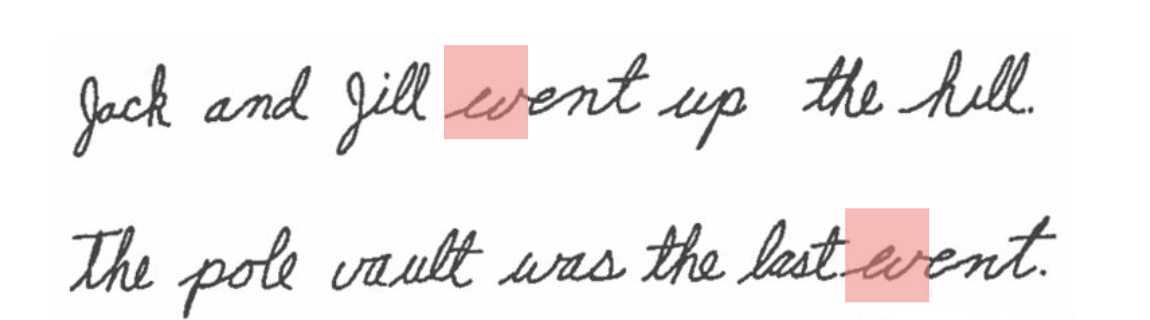 Jack and Jill went up the hill.
The pole vault was the last event.